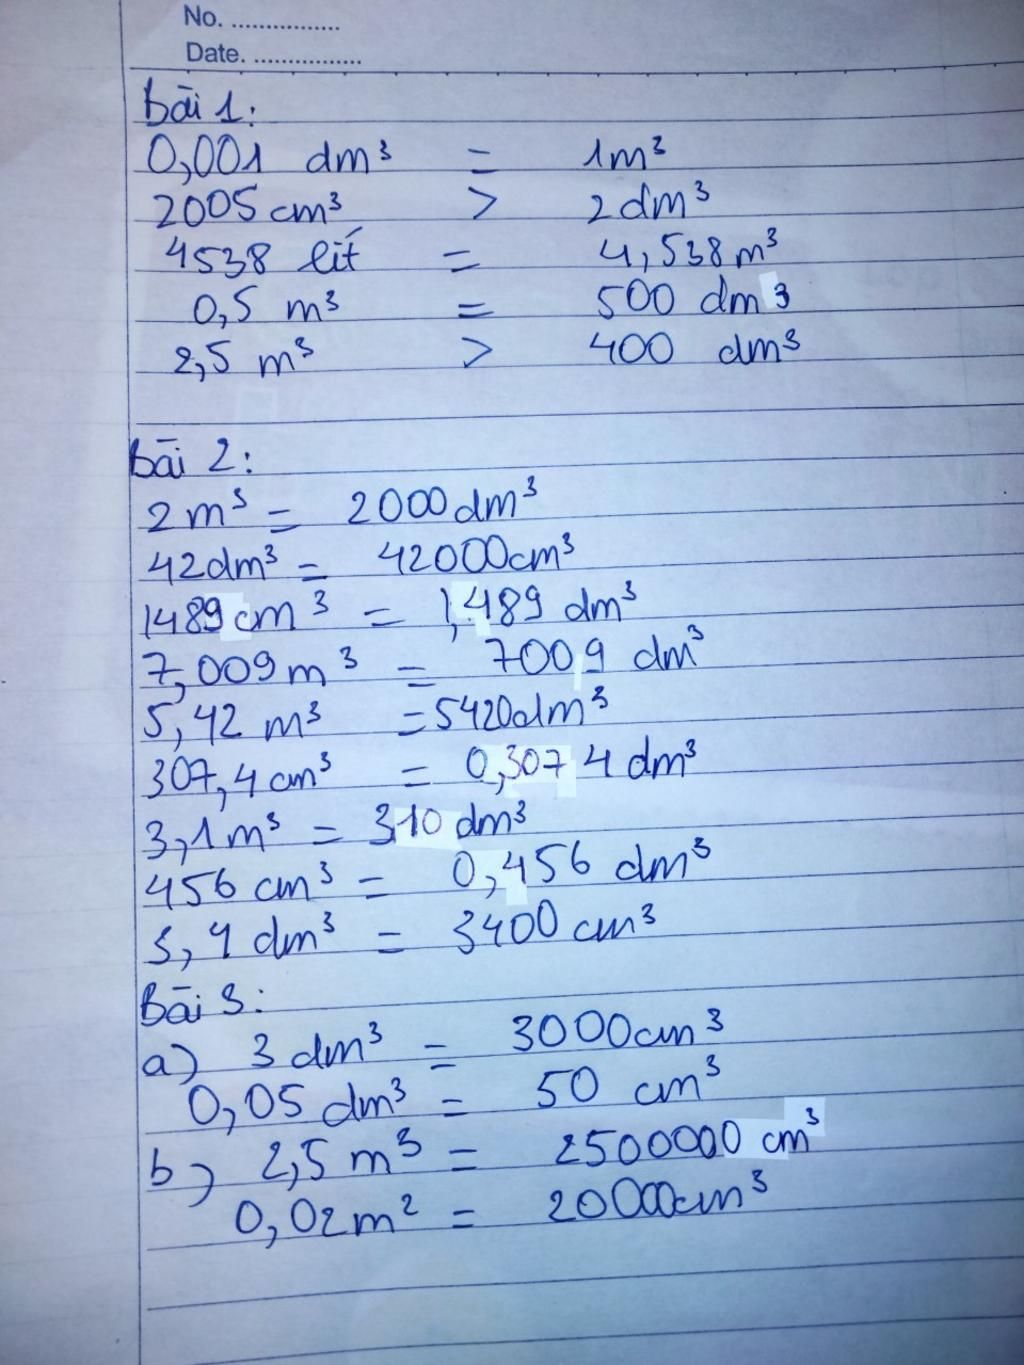 No. ................
Date. ................
Bài 1:
0,001 dm³ = 1m³
2005 cm³ > 2dm³
4538 lít = 4,538m³
0,5 m³ = 500 dm3
2,5 m³ > 400 dm³
Bài 2:
2m³ = 2000dm³
42dm³ = 42000cm³
1489cm³ = 1,489 dm³
7,009m³ = 7009 dm³
5,42 m³ = 5420dm³
307,4cm³ = 0,3074 dm³
3,1m³ = 310 dm³
456 cm³ = 0,456 dm³
3,4 dm³ = 3400 cm³
Bài 3:
a) 3 dm³ = 3000cm³
0,05 dm³ = 50 cm³
b) 2,5 m³ = 2500000 cm³
0,02m² = 20000cm³